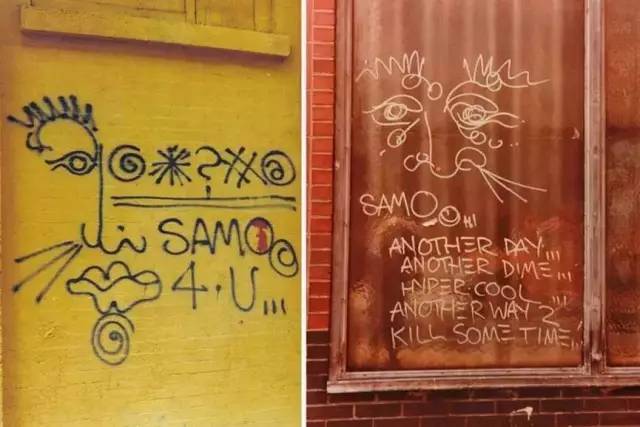 @*?X@
SAMO©
4·U,,,
SAMO©
ANOTHER DAY,,,
ANOTHER DIME,,,
HYPER-COOL,,,
ANOTHER WAY 2
KILL SOME TIME,,,